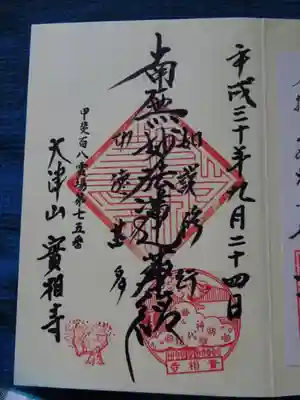 平成三十年九月二十四日
如説修行
南無妙法蓮華経
功徳甚多
甲斐百八霊場第七五番
大津山 實相寺
實相寺